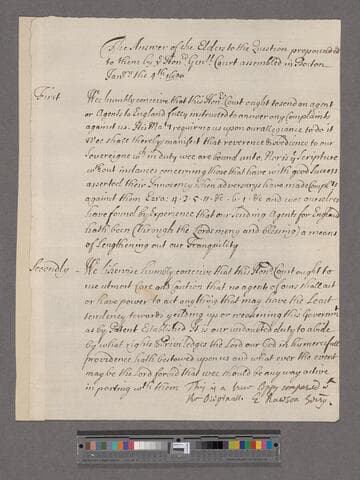 The Answer of the Elders to the Question propounded
to them by ye Honrd Genll Court assembled in Boston
Janry the 4th 1680
First We humbly conceive that this Honrd Court ought to send an agent
or Agents to England fully instructed to answer any Complaints
against us. His Maty requiring us upon our allegiance to do it
Wee shall thereby manifest that reverence & obedience to our
Sovereigne wch in duty wee are bound unto, Nor is ye Scripture
without instances concerning those that have with good Success
asserted their Innocency when adversarys have made Complts
against them Ezra: 4-2-5-11-&c - 6-1-&c and wee ourselves
have found by Experience that our sending Agents for England
hath been (through the Lords mercy and blessing) a means
of Lengthening out our Tranquility
Secondly - We likewise humbly conceive that this Honrd Court ought to
use utmost Care and caution that no agent of ours shall act
or have power to act anything that may have the Least
tendency towards yeilding up or weakening this Governmt
as by Patent Established It is our undoubted duty to abide
by what rights & Priviledges the Lord our God in his mercifull
providence hath bestowed upon us and what ever the event
may be the Lord forbid that wee should be any way active
in parting wth them This is a true Coppy compared wth
the Originall E Rawson Secry.